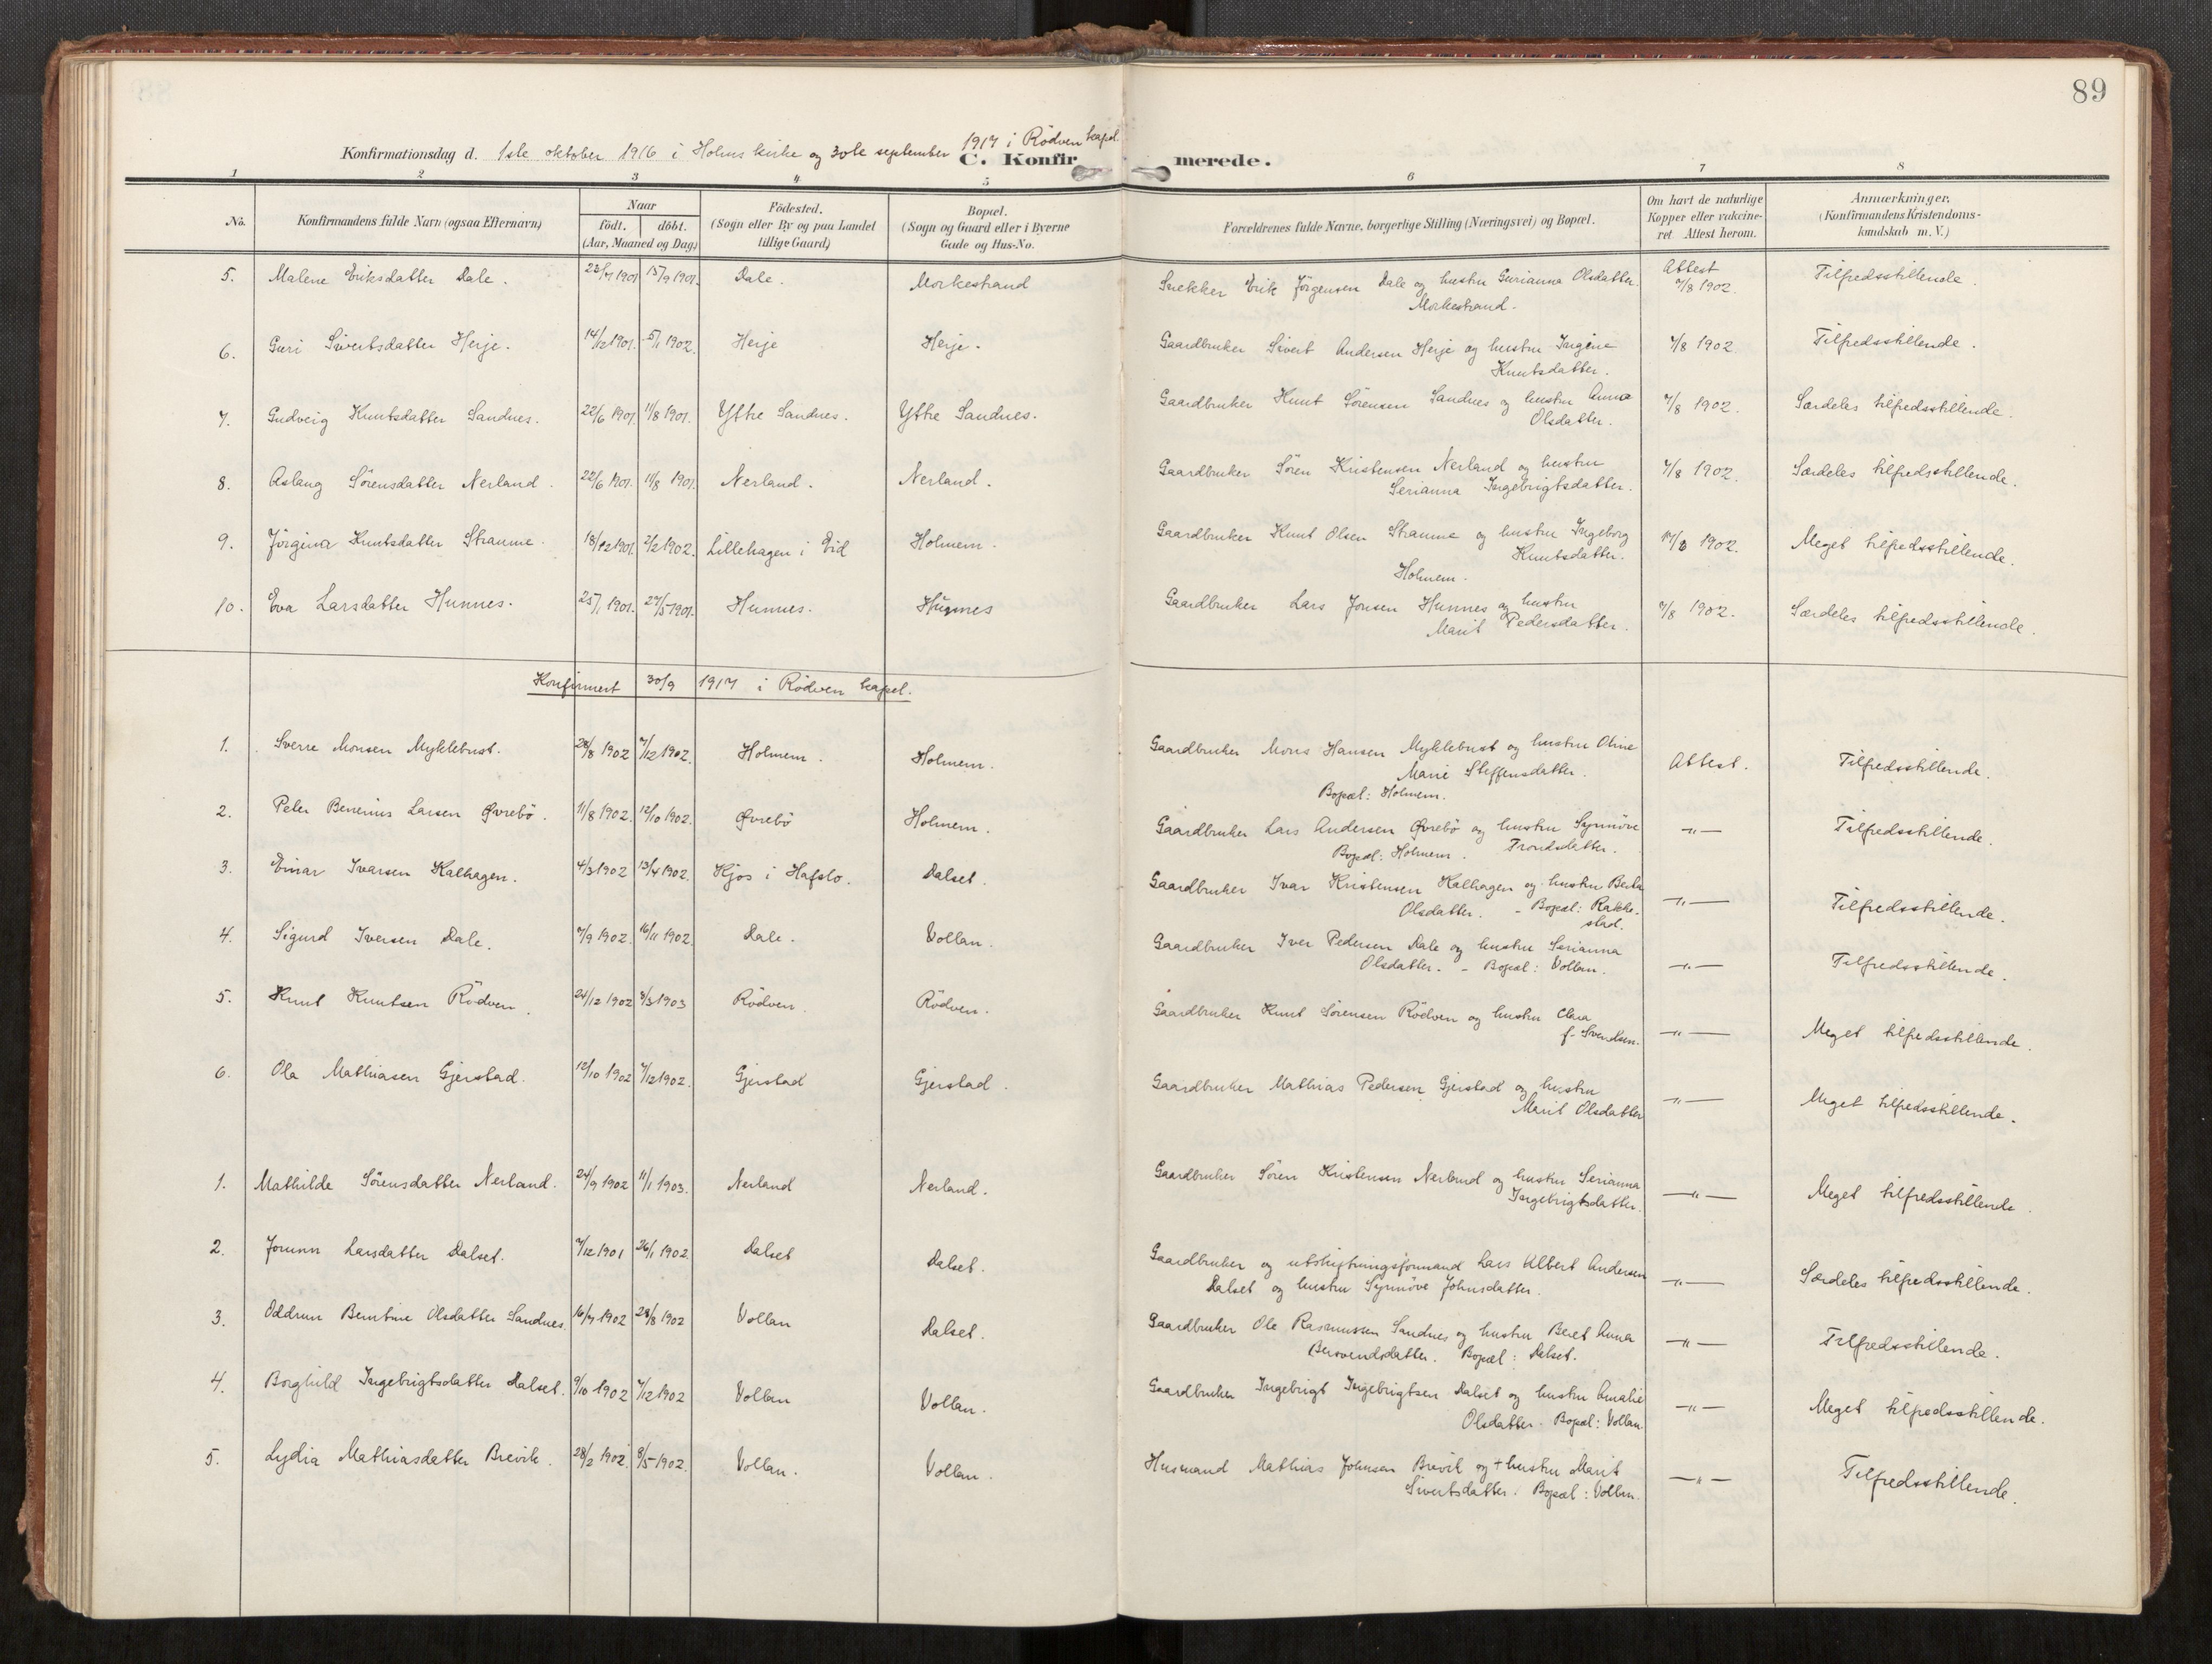 89
Konfirmationsdag d. 1ste oktober 1916 i Holms kirke og 30te september 1917 i Rödven kapel.
C. Konfirmerede.
1 2 3 4 5 6 7 8
No. Konfirmandens fulde Navn (ogsaa Efternavn) Naar födt. döbt. (Aar, Maaned og Dag) Födested. (Sogn eller By og paa Landet tillige Gaard) Bopæl. (Sogn og Gaard eller i Byerne Gade og Hus-No. Forældrenes fulde Navne, borgerlige Stilling (Næringsvei) og Bopæl. Om havt de naturlige Kopper eller vakcineret. Attest herom. Anmærkninger. (Konfirmandens Kristendomskundskab m. V.)
5. Malene Eriksdatter Dale. 23/7 1901 15/9 1901. Dale. Morkestrand Snekker Erik Jörgensen Dale og hustru Gurianna Olsdatter. Attest 7/8 1902. Tilfredsstillende.
Morkestrand.
6. Guri Sivertsdatter Herje. 14/12 1901. 5/1 1902. Herje Herje. Gaardbruker Sivert Andersen Herje og hustru Ingine 7/8 1902. Tilfredsstillende.
Knutsdatter.
7. Gudveig Knutsdatter Sandnes. 22/6 1901. 11/8 1901. Ytre Sandnes. Ytre Sandnes. Gaardbruker Knut Sörensen Sandnes og hustru Anna 7/8 1902. Særdeles tilfredsstillende.
Olsdatter.
8. Aslaug Sörensdatter Nerland. 22/6 1901. 11/8 1901. Nerland. Nerland. Gaardbruker Sören Kristensen Nerland og hustru 7/8 1902. Særdeles tilfredsstillende.
Serianna Ingebrigtsdatter.
9. Jörgina Knutsdatter Straume. 18/12 1901. 2/2 1902. Lillehagen i Eid Holmem. Gaardbruker Knut Olsen Straume og hustru Ingeborg 1902. Meget tilfredsstillende.
Knutsdatter.
Holmem.
10. Eva Larsdatter Hunnes. 25/1 1901. 27/5 1901. Hunnes. Hunnes Gaardbruker Lars Jonsen Hunnes og hustru 7/8 1902. Særdeles tilfredsstillende.
Marit Pedersdatter.
Konfirmert 30/9 1917 i Rödven kapel.
1. Sverre Monsen Myklebust. 28/8 1902 7/12 1902. Holmem. Holmem. Gaardbruker Mons Hansen Myklebust og hustru Oline Attest. Tilfredsstillende.
Marie Steffensdatter.
Bopæl: Holmem.
2. Peter Benenius Larsen Øvrebö. 11/8 1902. 12/10 1902. Øvrebö Holmem. Gaardbruker Lars Andersen Øvrebö og hustru Synnöve —"— Tilfredsstillende.
Bopæl: Holmem. Trondsdatter.
3. Einar Ivarsen Kalhagen. 4/3 1902 13/4 1902. Kjos i Hafslo. Dalset. Gaardbruker Ivar Kristensen Kalhagen og hustru Berta —"— Tilfredsstillende.
Olsdatter. - Bopæl: Rakkestad.
4. Sigurd Iversen Dale. 7/9 1902. 16/11 1902. Dale. Vollan. Gaardbruker Iver Pedersen Dale og hustru Serianna —"— Tilfredsstillende.
Olsdatter. - Bopæl: Vollan.
5. Knut Knutsen Rödven. 24/12 1902 8/3 1903 Rödven. Rödven. Gaardbruker Knut Sörensen Rödven og hustru Clara —"— Meget tilfredsstillende.
f. Svendsen.
6. Ola Mathiasen Gjerstad. 12/10 1902 7/12 1902. Gjerstad Gjerstad. Gaardbruker Mathias Pedersen Gjerstad og hustru —"— Meget tilfredsstillende.
Marit Olsdatter
1. Mathilde Sörensdatter Nerland. 24/9 1902 11/1 1903. Nerland Nerland. Gaardbruker Sören Kristensen Nerland og hustru Serianna —"— Meget tilfredsstillende.
Ingebrigtsdatter.
2. Jorunn Larsdatter Dalset. 7/12 1901 26/1 1902. Dalset Dalset. Gaardbruker og utskiftningsformand Lars Albert Andersen —"— Særdeles tilfredsstillende.
Dalset og hustru Synnöve Johnsdatter.
3. Oddrun Berntine Olsdatter Sandnes. 16/7 1902 28/8 1902 Vollan Dalset. Gaardbruker Ole Rasmussen Sandnes og hustru Beret Anna —"— Tilfredsstillende.
Bersvendsdatter. Bopæl: Dalset.
4. Borghild Ingebrigtsdatter Dalset. 9/10 1902 7/12 1902 Vollan Vollan. Gaardbruker Ingebrigt Ingebrigtsen Dalset og hustru Amalie —"— Meget tilfredsstillende.
Olsdatter. Bopæl: Vollan.
5. Lydia Mathiasdatter Brevik. 28/2 1902. 8/5 1902. Vollan. Vollan. Husmand Mathias Johnsen Brevik og + hustru Marit —"— Tilfredsstillende.
Sivertsdatter. Bopæl: Vollan.